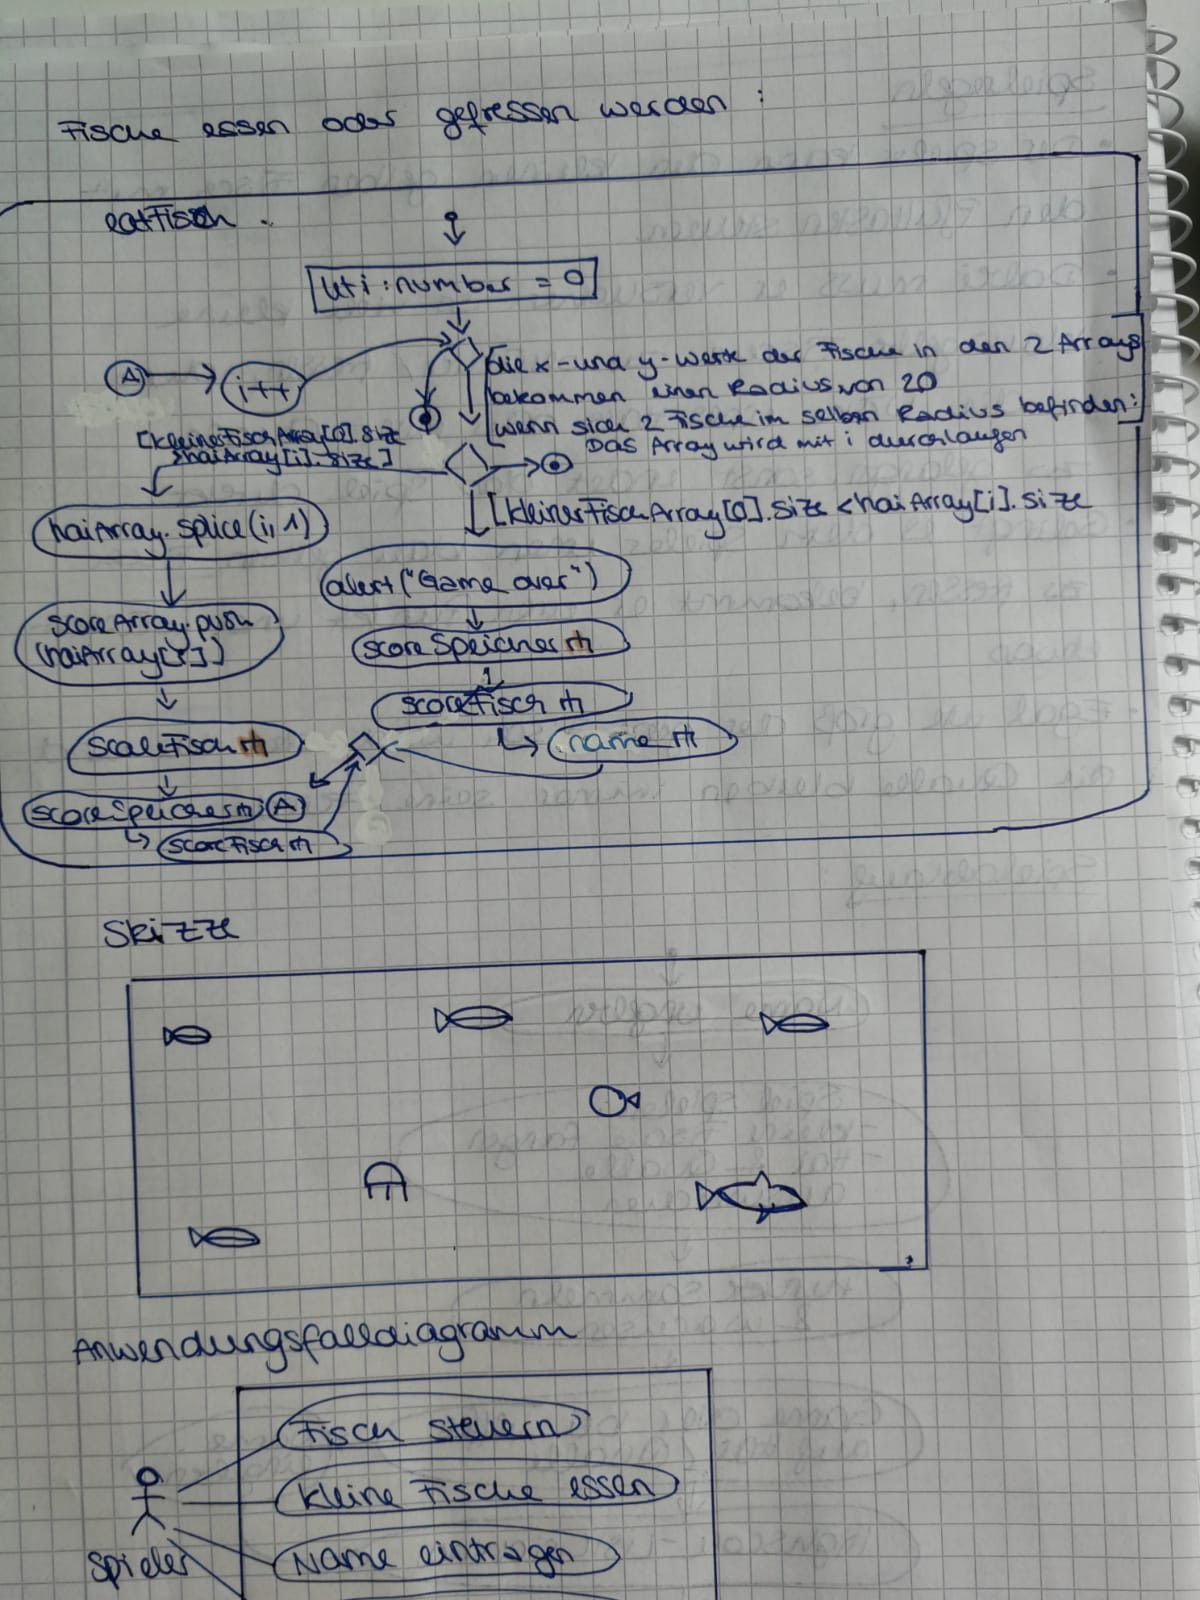 Fische essen oder gefressen werden:
eatFisch
let i:number = 0
A
i++
[die x-und y-Werte der Fische in den 2 Arrays
bekommen einen Radius von 20
wenn sich 2 Fische im selben Radius befinden:]
Das Array wird mit i durchlaufen
[kleinerFischArray[0].size
>haiArray[i].size]
[kleinerFischArray[0].size <haiArray[i].size
haiArray.splice(i,1)
alert("Game over")
scoreArray.push
(haiArray[i])
scoreSpeichern
scoreFisch
scaleFisch
name
scoreSpeichern
A
scoreFisch
Skizze
Anwendungsfalldiagramm
Fisch steuern
Kleine Fische essen
Name eintragen
Spieler